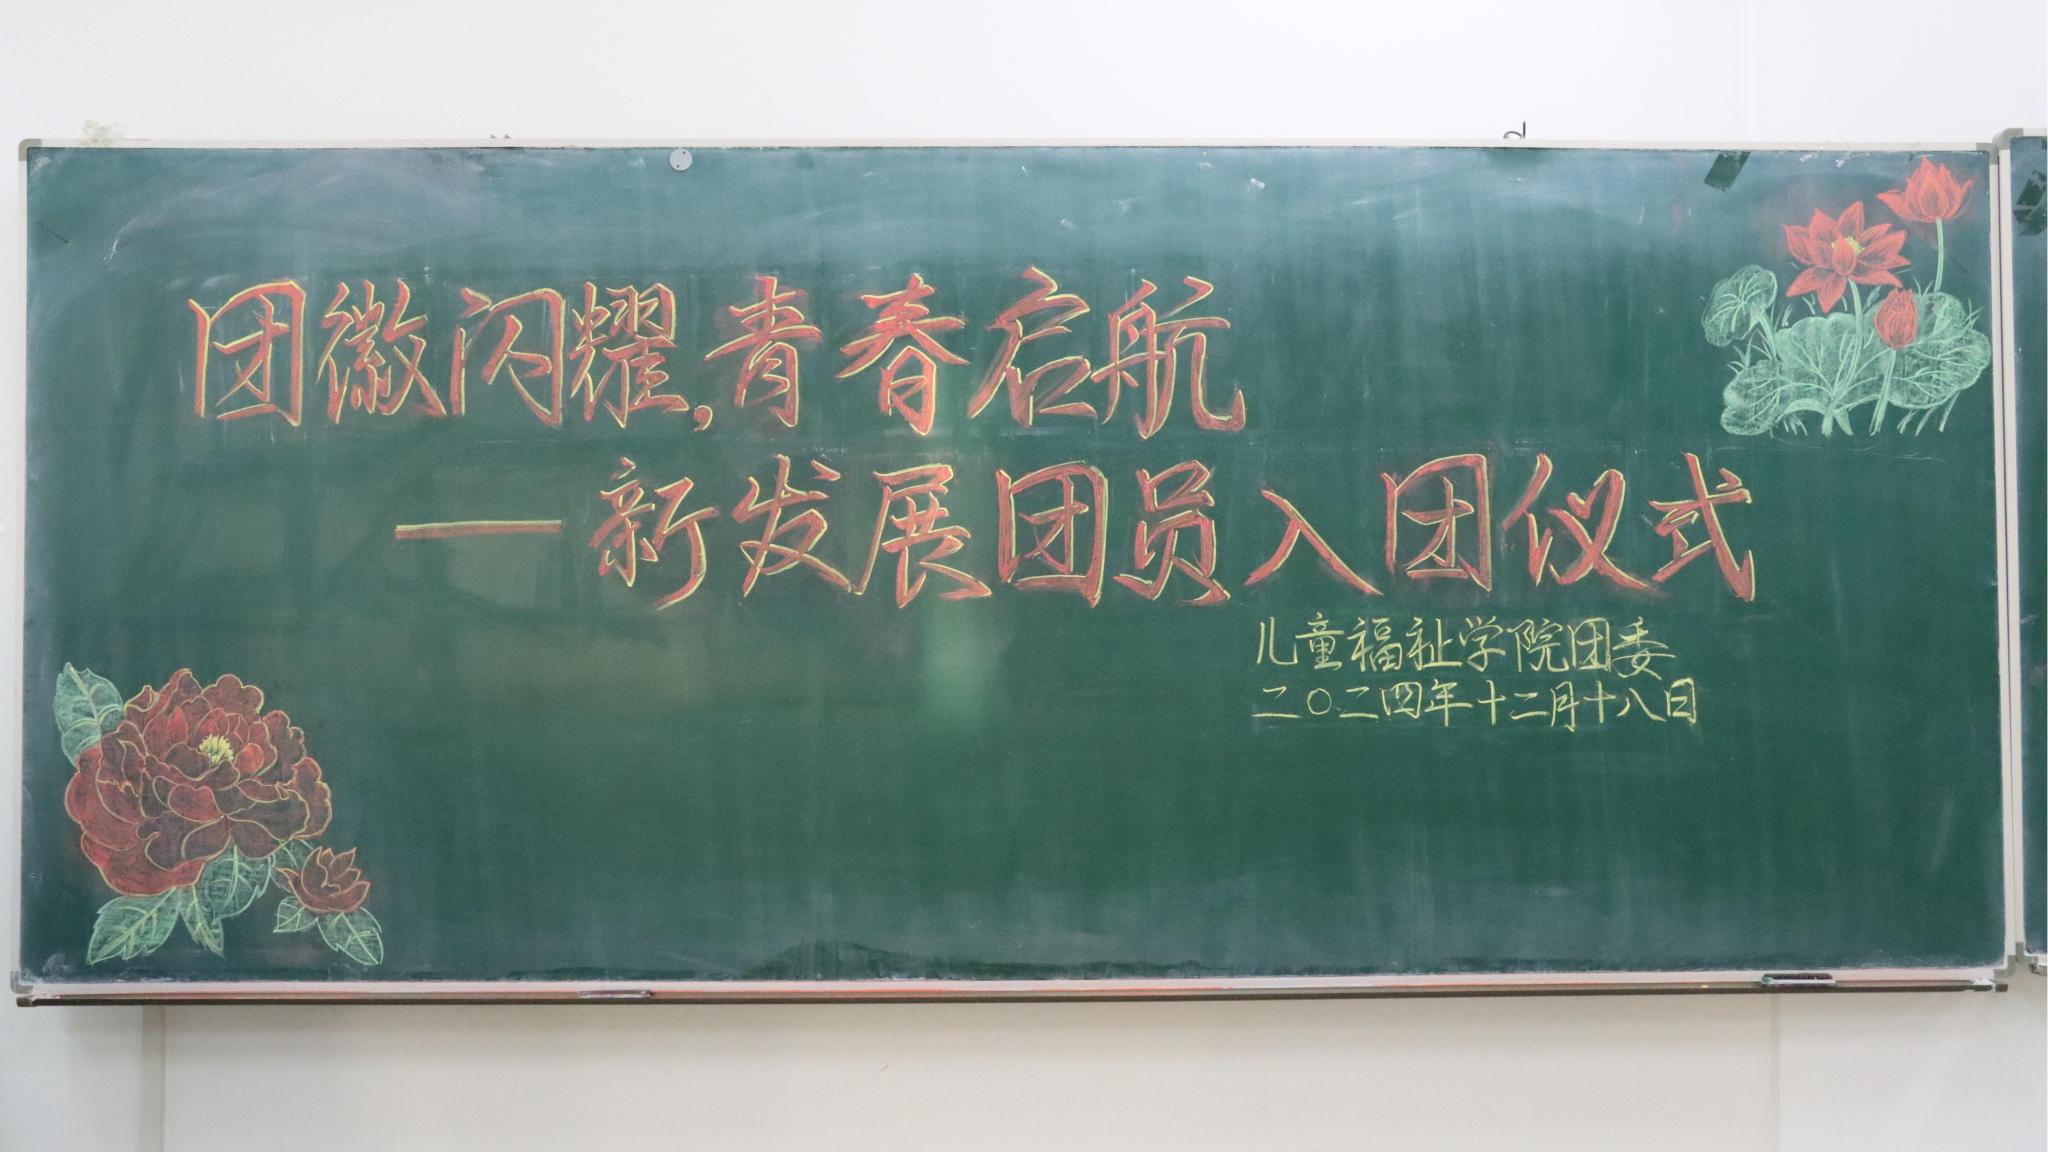 团徽闪耀,青春启航
——新发展团员入团仪式
儿童福祉学院团委
二〇二四年十二月十八日